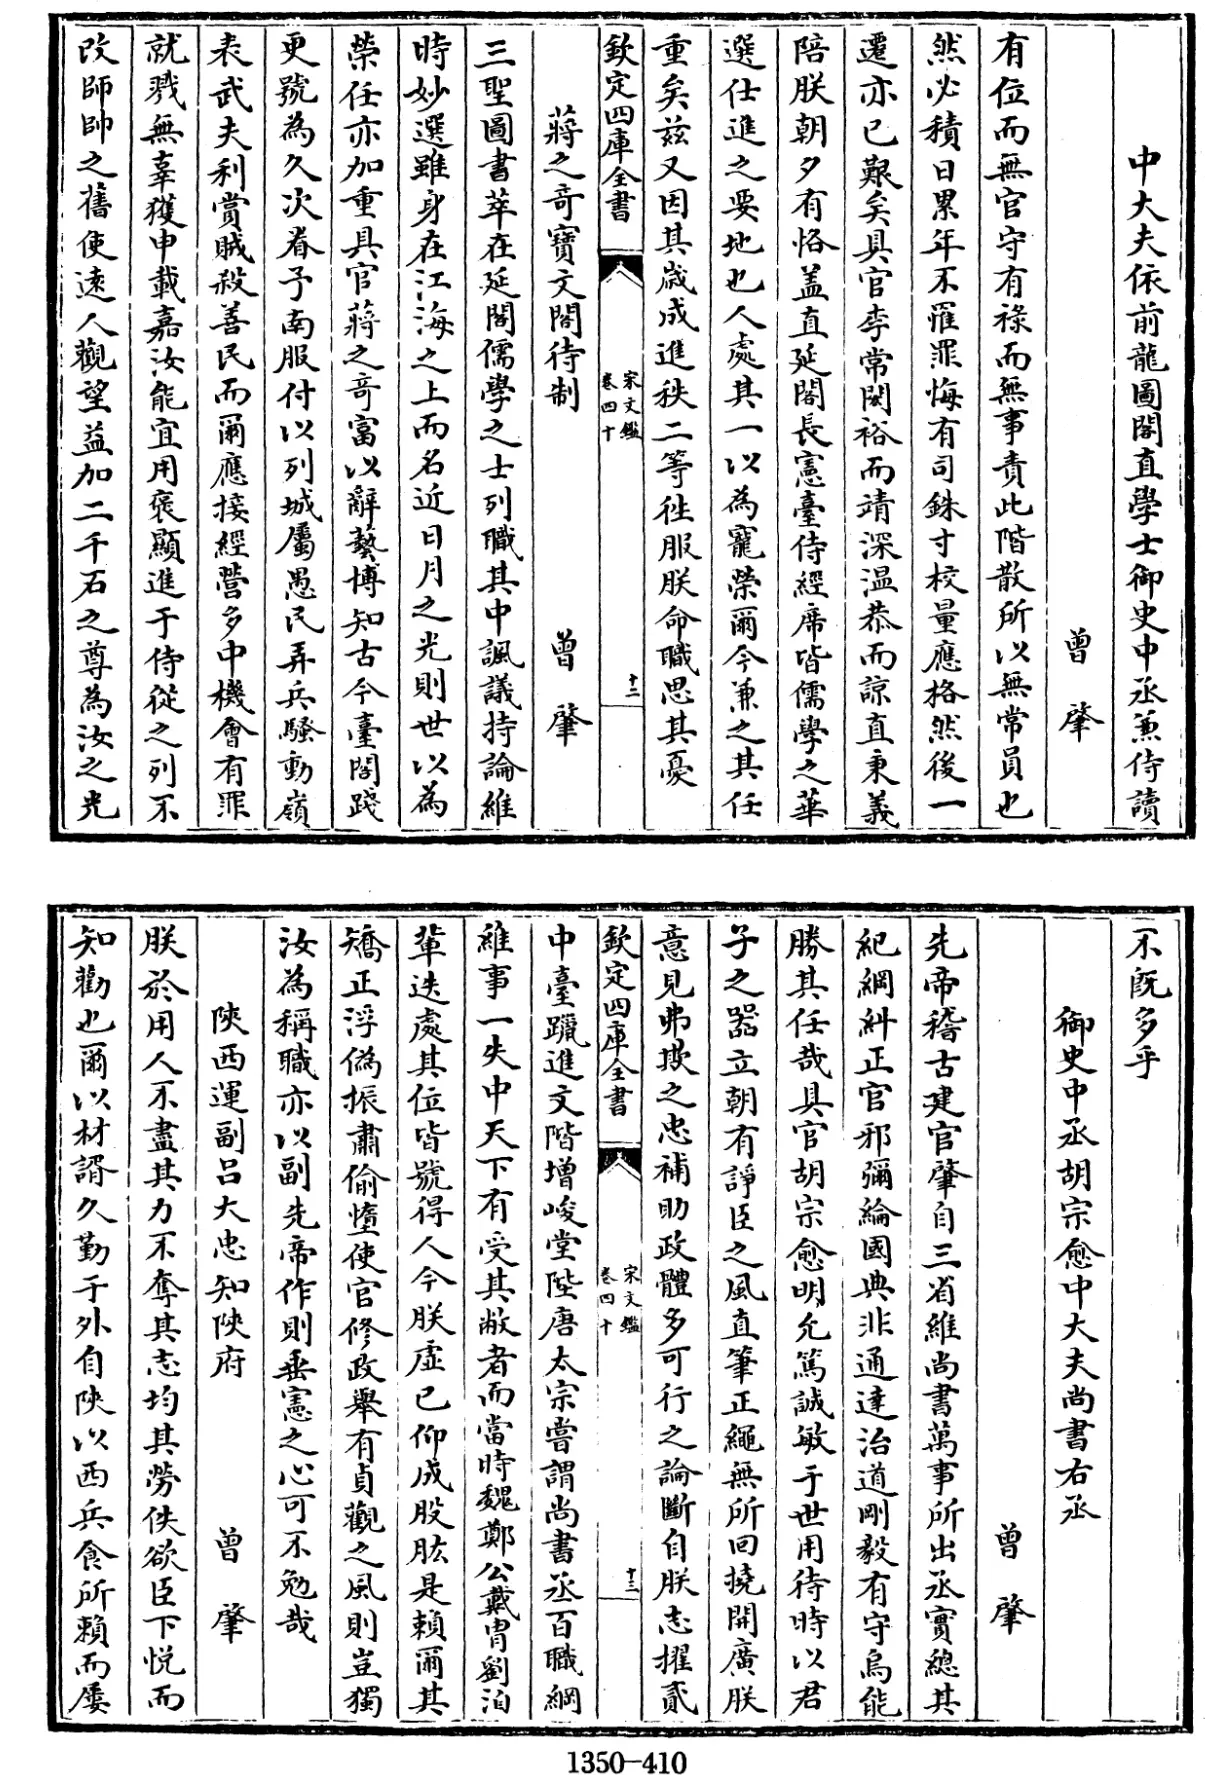 中大夫依前龍圖閣直學士御史中丞兼侍讀
曾肇
有位而無官守有祿而無事責此階散所以無常員也
然必積日累年不罹罪悔有司銖寸校量應格然後一
遷亦已艱矣具官李常閎裕而靖深温恭而諒直秉義
陪朕朝夕有恪盖直延閣長憲臺侍經席皆儒學之華
選仕進之要地也人處其一以為寵榮爾今兼之其任
重矣兹又因其歲成進秩二等徃服朕命職思其憂
欽定四庫全書
宋文鑑
卷四十
十二
蔣之竒寶文閣待制
曾肇
三聖圖書萃在延閣儒學之士列職其中諷議持論維
時妙選雖身在江海之上而名近日月之光則世以為
榮任亦加重具官蔣之竒富以辭藝博知古今臺閣踐
更號為久次眷予南服付以列城屬愚民弄兵騷動嶺
表武夫利賞賊殺善民而爾應接經營多中機會有罪
就戮無辜獲申載嘉汝能宜用褒顯進于侍從之列不
改師帥之舊使逺人觀望益加二千石之尊為汝之光
不既多乎
御史中丞胡宗愈中大夫尚書右丞
曾肇
先帝稽古建官肇自三省維尚書萬事所出丞實總其
紀綱糾正官邪彌綸國典非通達治道剛毅有守烏能
勝其任哉具官胡宗愈明允篤誠敏于世用待時以君
子之器立朝有諍臣之風直筆正繩無所回撓開廣朕
意見弗欺之忠補助政體多可行之論斷自朕志擢貳
欽定四庫全書
宋文鑑
卷四十
十三
中臺躐進文階增峻堂陛唐太宗嘗謂尚書丞百職綱
維事一失中天下有受其敝者而當時魏鄭公戴胄劉洎
輩迭處其位皆號得人今朕虛已仰成股肱是賴爾其
矯正浮偽振肅偷惰使官修政舉有貞觀之風則豈獨
汝為稱職亦以副先帝作則垂憲之心可不勉哉
陜西運副吕大忠知陜府
曾肇
朕於用人不盡其力不奪其志均其勞佚欲臣下悦而
知勸也爾以材諝久勤于外自陜以西兵食所賴而屢
1350-410